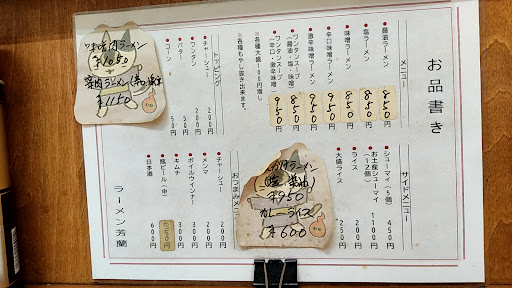 お品書き
メニュー
●醤油ラーメン 850円
●塩ラーメン 850円
●味噌ラーメン 850円
●辛口味噌ラーメン 950円
●激辛味噌ラーメン 950円
●ワンタンスープ(醤油・塩・味噌) 850円
●ワンタンスープ(辛口・激辛味噌) 950円
※各種大盛100円増し
※各種もやし抜き出来ます。
トッピング
●チャーシュー 200円
●ワンタン 200円
●バター 50円
●コーン 50円
サイドメニュー
●シューマイ(5個) 450円
●お土産シューマイ(12個) 1100円
●ライス 200円
●大盛ライス 250円
おつまみメニュー
●チャーシュー 200円
●メンマ 200円
●ボイルウインナー 300円
●キムチ 300円
●瓶ビール(中)
●日本酒 600円
ラーメン芳蘭
肉ラーメン
¥1050
¥1150
ラーメン
¥950
カレーライス
¥600